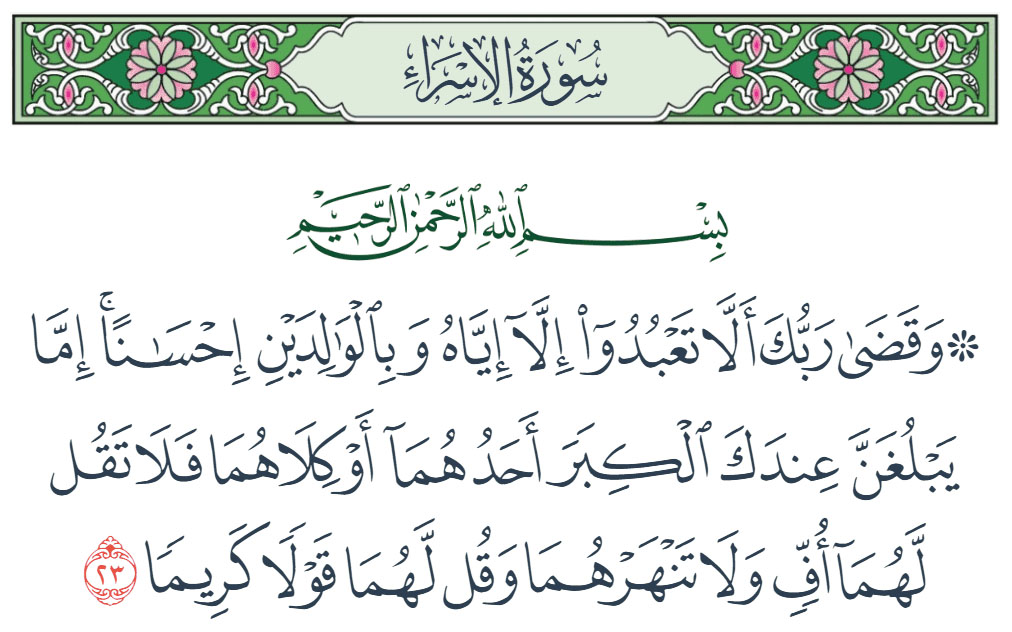 سُورَةُ الإِسْرَاءِ
بِسْمِ ٱللَّهِ ٱلرَّحْمَٰنِ ٱلرَّحِيمِ
۞ وَقَضَىٰ رَبُّكَ أَلَّا تَعْبُدُوٓا۟ إِلَّآ إِيَّاهُ وَبِٱلْوَٰلِدَيْنِ إِحْسَـٰنًا ۚ إِمَّا
يَبْلُغَنَّ عِندَكَ ٱلْكِبَرَ أَحَدُهُمَآ أَوْ كِلَاهُمَا فَلَا تَقُل
لَّهُمَآ أُفٍّ وَلَا تَنْهَرْهُمَا وَقُل لَّهُمَا قَوْلًا كَرِيمًا ٢٣